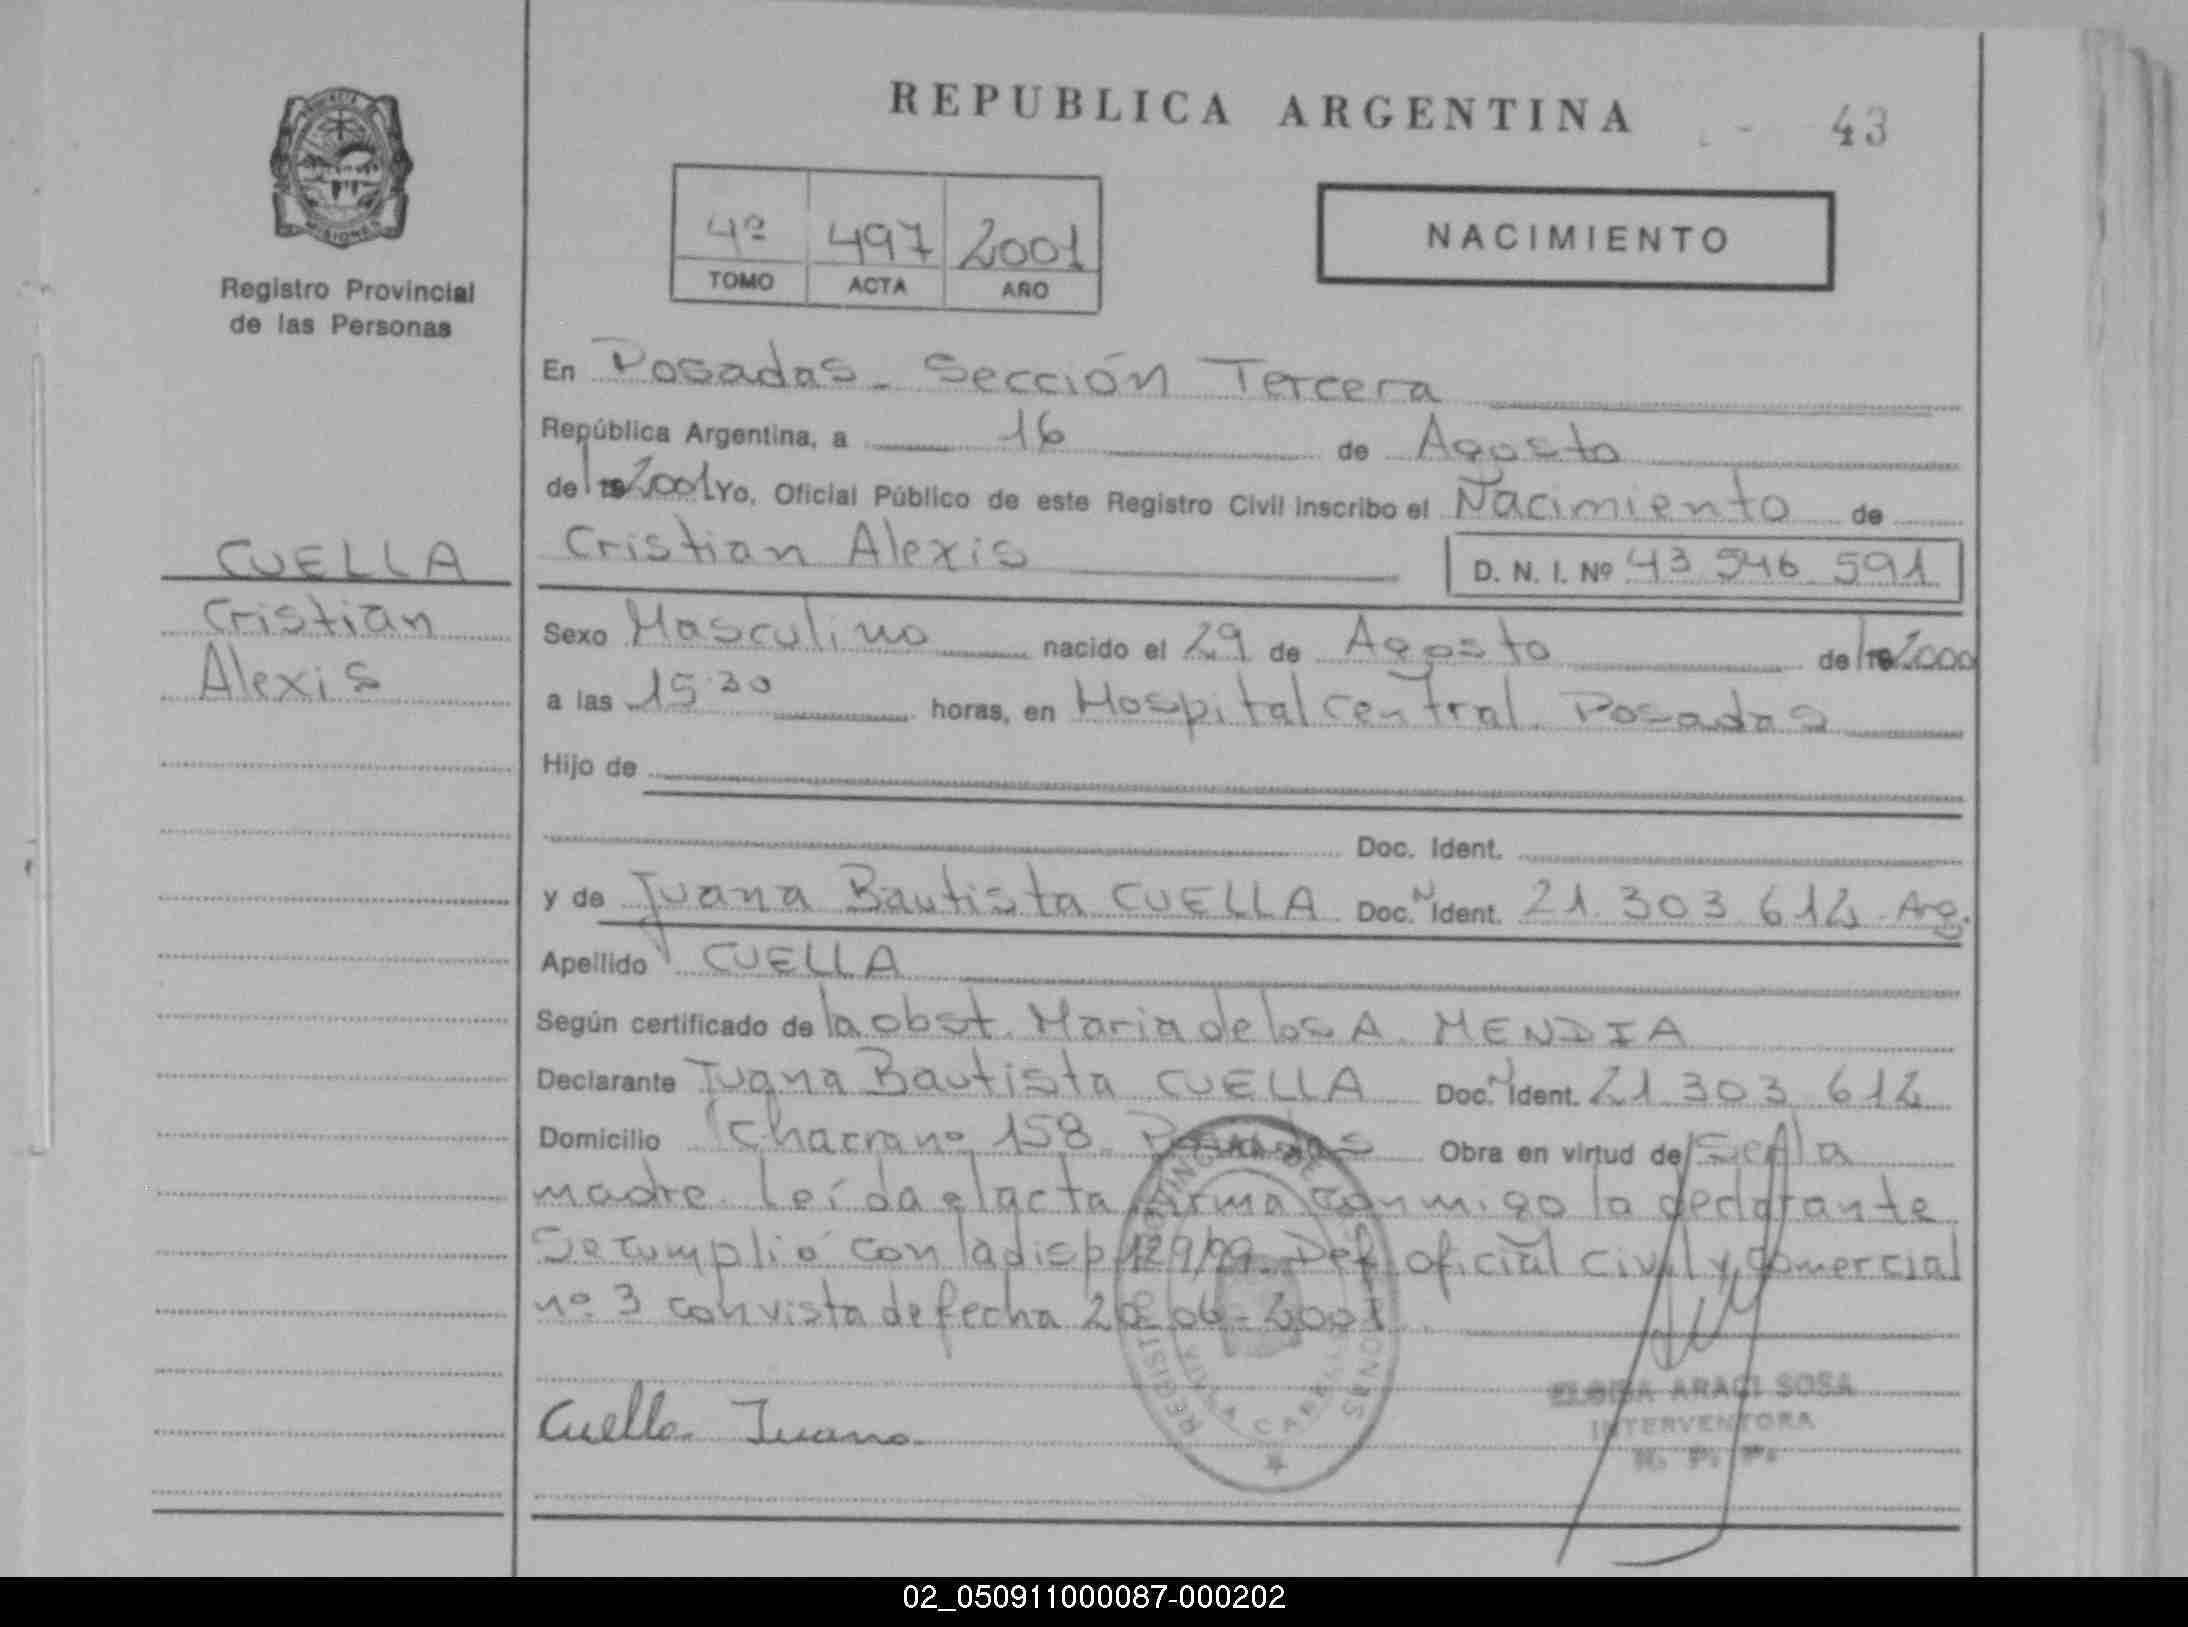 REPUBLICA ARGENTINA
43
MISIONES
Registro Provincial
de las Personas
4º 497 2001
TOMO ACTA AÑO
NACIMIENTO
En Posadas - Sección Tercera
República Argentina, a 16 de Agosto
de 2001 Yo, Oficial Público de este Registro Civil inscribo el Nacimiento de
CUELLA
Cristian Alexis D. N. I. Nº 43 546 591
Cristian
Alexis
Sexo Masculino nacido el 29 de Agosto de 2000
a las 15.30 horas, en Hospital Central. Posadas
Hijo de
Doc. Ident.
y de Juana Bautista CUELLA Doc. Ident. 21.303.612 Arg.
Apellido CUELLA
Según certificado de la obst. Maria de los A. MENDIA
Declarante Juana Bautista CUELLA Doc. Ident. 21.303.612
Domicilio Chacra nº 158. Posadas Obra en virtud de Ser la
madre. Leída el acta firma conmigo la declarante
Se cumplió con la disp 129/99. Def. oficial civil y comercial
nº 3 con vista de fecha 20-06-2001
Cuella Juana
ELOISA ARACI SOSA
INTERVENTORA
R. P. P.
02_050911000087-000202